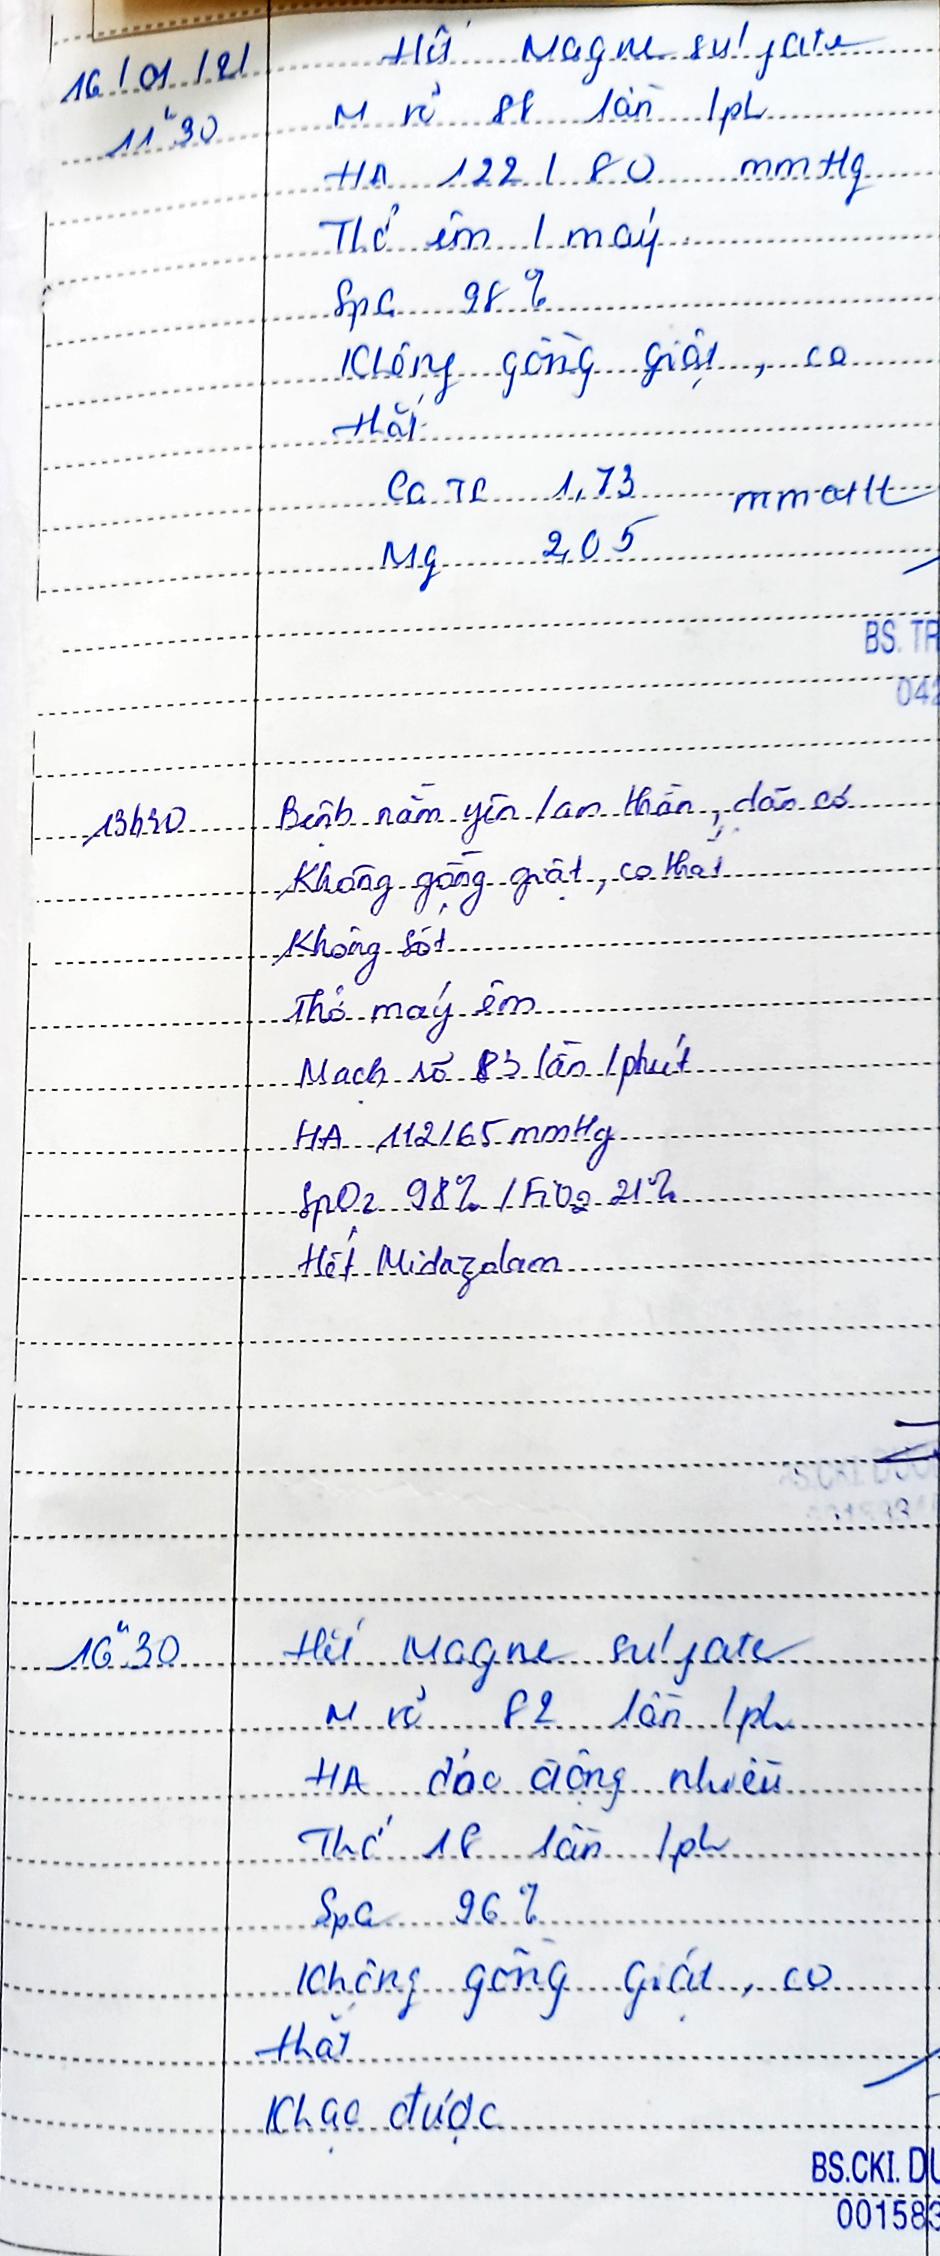 16/01/21 Hết Magne sulfate
11h30 M rõ 88 lần/ph
HA 122/80 mmHg
Thở êm / máy
SpO 98%
Không gồng giật, co
thắt
Ca TP 1,73 mmol/l
Mg 2,05
BS. TR
042
13h30 Bệnh nằm yên / an thần, dãn cơ
Không gồng giật, co thắt
Không sốt
Thở máy êm
Mạch rõ 83 lần/phút
HA 112/65 mmHg
SpO2 98% / FiO2 21%
Hết Midazolam
001583
16h30 Hết Magne sulfate
M rõ 82 lần/ph
HA dao động nhiều
Thở 18 lần/ph
SpO 96%
Không gồng giật, co
thắt
Khạc được
BS.CKI. DƯ
001583